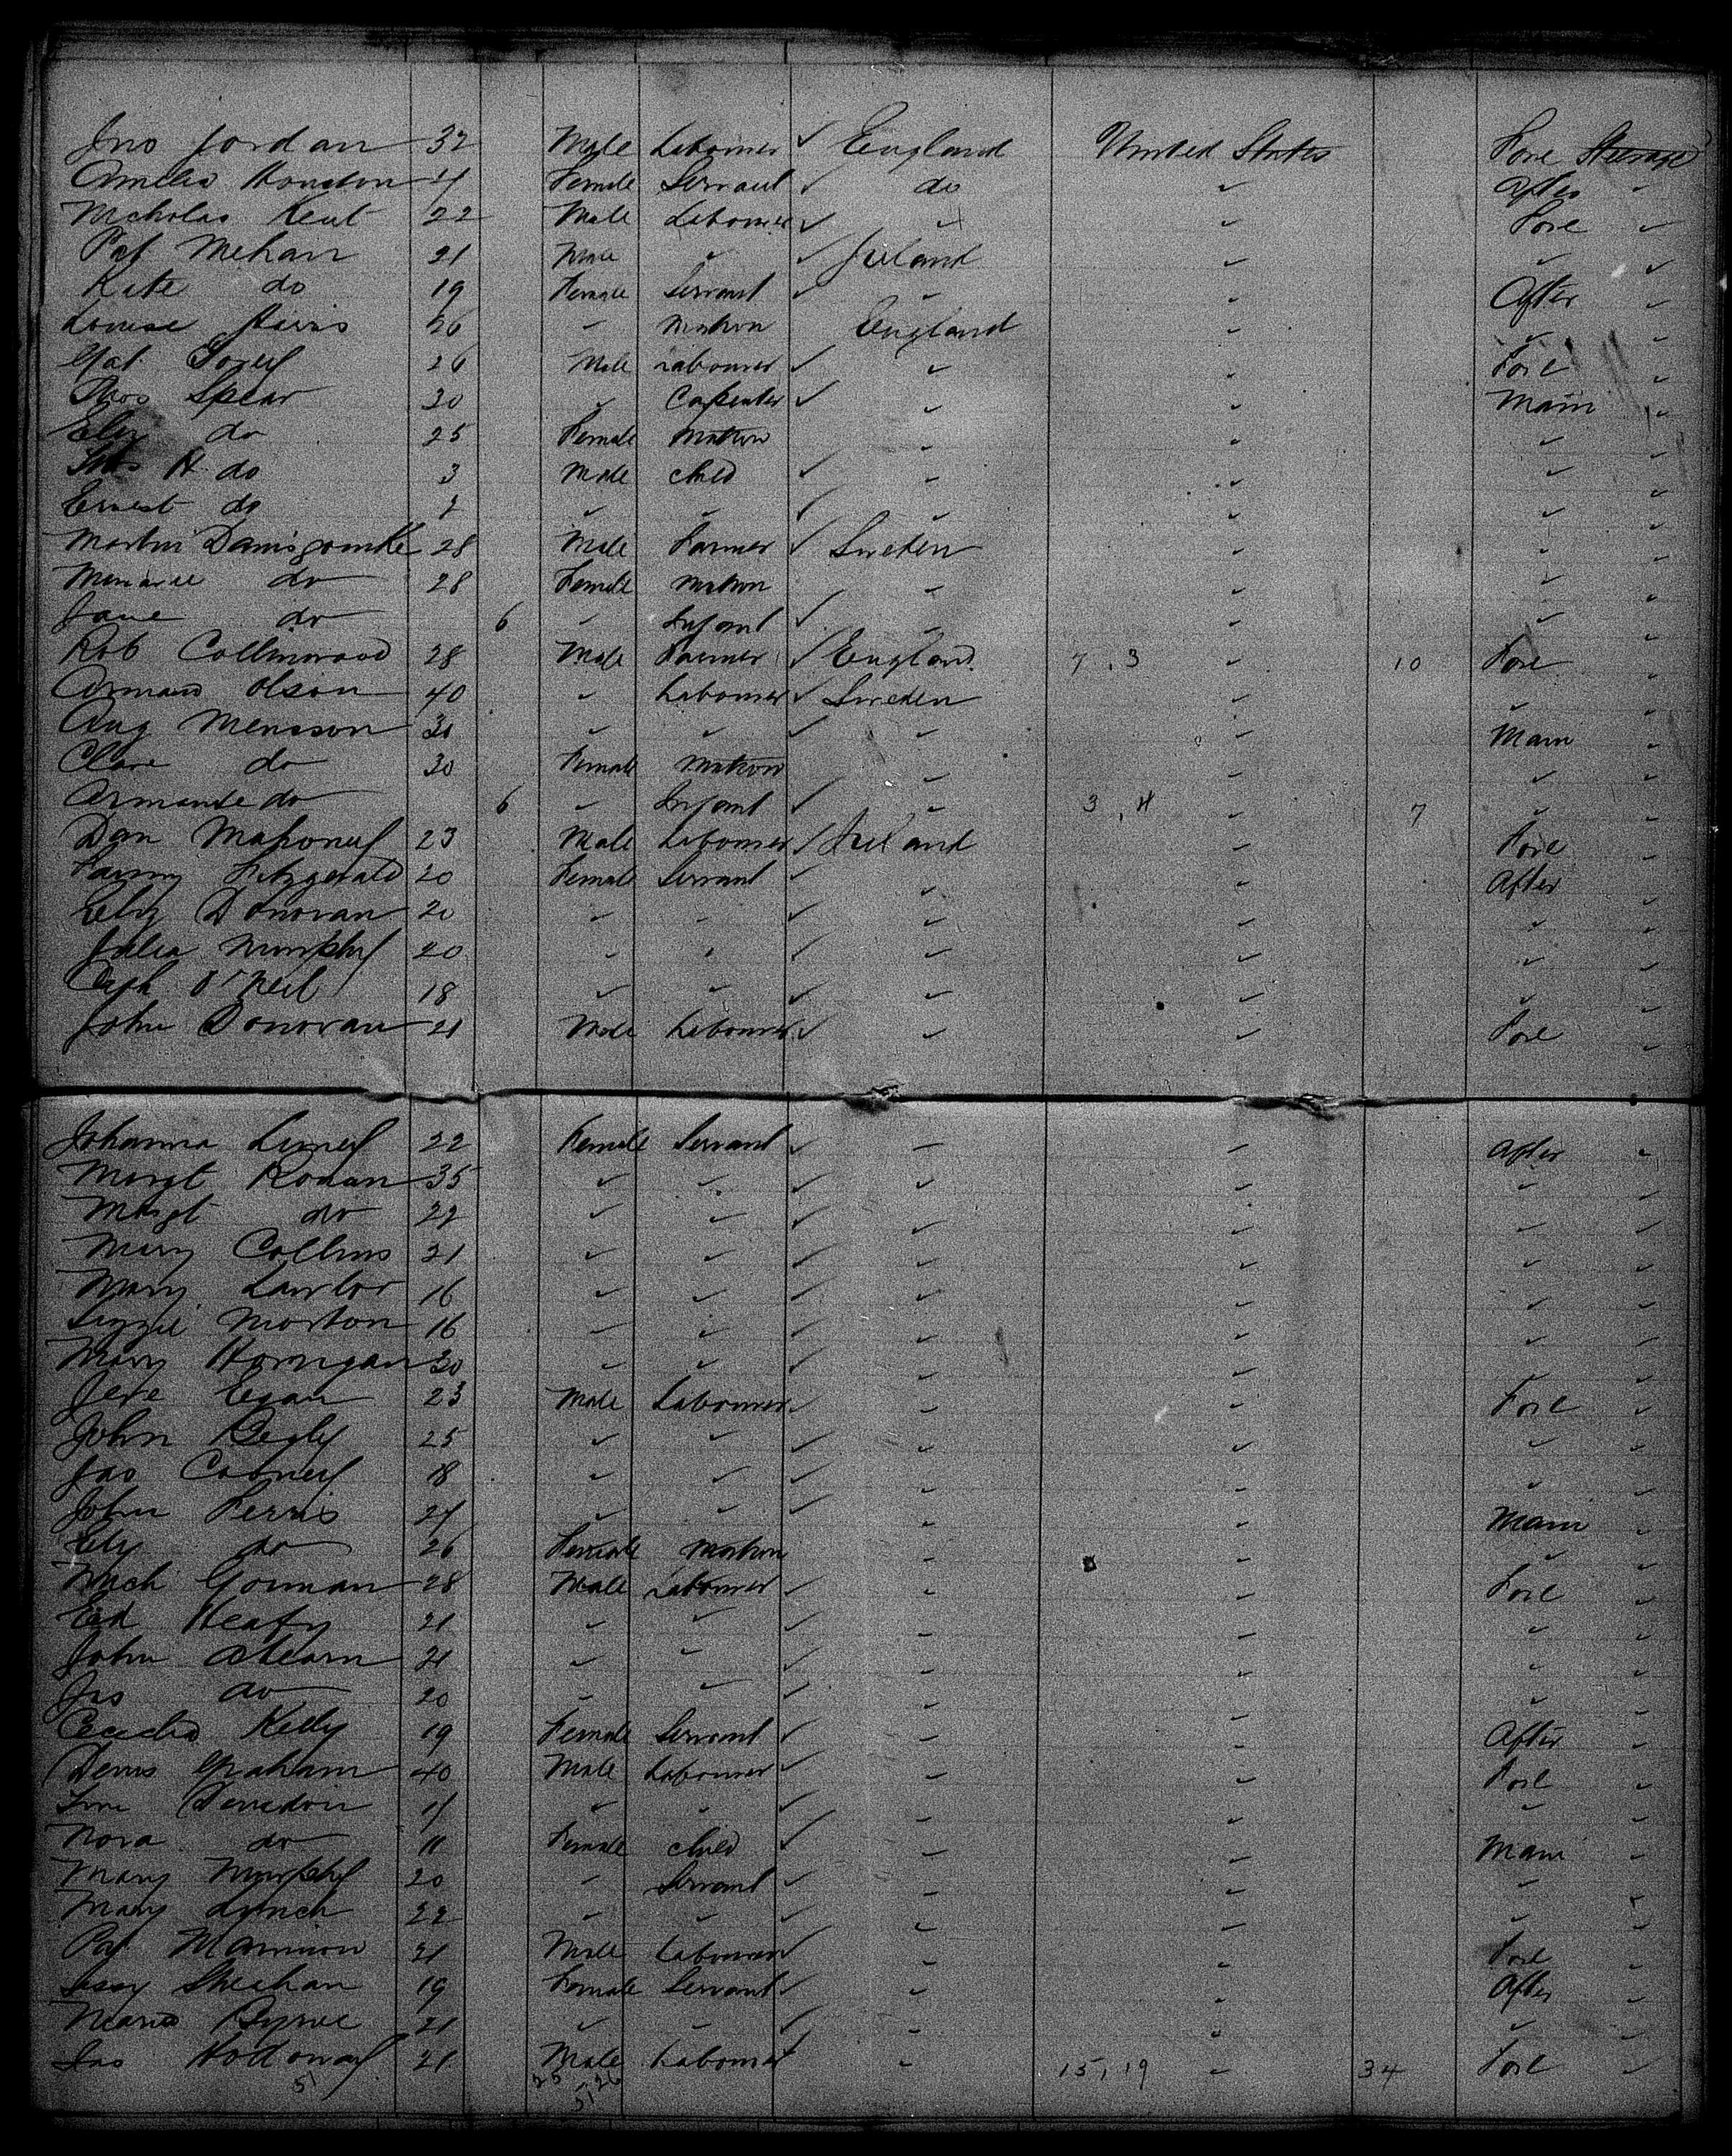 Jno Jordan 32 Male Labourer ✓ England United States Fore Steerage
Amelia Houston Female Servant ✓ do ✓ After ✓
Nicholas Kent 22 Male Labourer ✓ ✓ ✓ Fore ✓
Pat Mehan 21 Male ✓ ✓ Ireland ✓ ✓ ✓
Kate do 19 Female Servant ✓ ✓ ✓ After ✓
Louise Harris 26 ✓ Matron England ✓ ✓ ✓
26 Male Labourer ✓ ✓ ✓ Fore ✓
Thos Spear 30 ✓ Carpenter ✓ ✓ ✓ Main ✓
Eliz do 25 Female Matron ✓ ✓ ✓ ✓
Thos H do 3 Male Child ✓ ✓ ✓ ✓ ✓
Ernest do 2 ✓ ✓ ✓ ✓ ✓ ✓ ✓
Martin 28 Male Farmer ✓ Sweden ✓ ✓ ✓
do 28 Female Matron ✓ ✓ ✓ ✓
Jane do 6 ✓ Infant ✓ ✓ ✓ ✓ ✓
Rob Collinwood 28 Male Farmer ✓ England 7, 3 ✓ 10 Fore ✓
Armand Olson 40 ✓ Labourer ✓ Sweden ✓ ✓ ✓
Aug Mensson 30 ✓ ✓ ✓ ✓ ✓ Main ✓
Clare do 30 Female Matron ✓ ✓ ✓ ✓
Armante do 6 ✓ Infant ✓ ✓ 3, 4 ✓ 7 ✓ ✓
Dan Mahoney 23 Male Labourer ✓ Ireland ✓ Fore ✓
Fanny Fitzgerald 20 Female Servant ✓ ✓ ✓ After ✓
Eliz Donovan 20 ✓ ✓ ✓ ✓ ✓ ✓ ✓
Julia Murphy 20 ✓ ✓ ✓ ✓ ✓ ✓ ✓
O'Neil 18 ✓ ✓ ✓ ✓ ✓ ✓ ✓
John Donovan 21 Male Labourer ✓ ✓ ✓ Fore ✓
Johanna Luney 22 Female Servant ✓ ✓ ✓ After ✓
Margt Ronan 35 ✓ ✓ ✓ ✓ ✓ ✓ ✓
Margt do 22 ✓ ✓ ✓ ✓ ✓ ✓ ✓
Mary Collins 21 ✓ ✓ ✓ ✓ ✓ ✓ ✓
Mary Lawlor 16 ✓ ✓ ✓ ✓ ✓ ✓ ✓
Lizzie Morton 16 ✓ ✓ ✓ ✓ ✓ ✓ ✓
Mary Horrigan 20 ✓ ✓ ✓ ✓ ✓ ✓
Jere Egan 23 Male Labourer ✓ ✓ ✓ Fore ✓
John Begly 25 ✓ ✓ ✓ ✓ ✓ ✓ ✓
Jas Cooney 18 ✓ ✓ ✓ ✓ ✓ ✓ ✓
John Ferris 27 ✓ ✓ ✓ ✓ ✓ Main ✓
Eliz do 26 Female Matron ✓ ✓ ✓ ✓
Mich Gorman 28 Male Labourer ✓ ✓ ✓ Fore ✓
Ed Heafy 21 ✓ ✓ ✓ ✓ ✓ ✓ ✓
John Ahearn 21 ✓ ✓ ✓ ✓ ✓ ✓ ✓
Jas do 20 ✓ ✓ ✓ ✓ ✓ ✓ ✓
Cecelia Kelly 19 Female Servant ✓ ✓ ✓ After ✓
Denis Graham 40 Male Labourer ✓ ✓ ✓ Fore ✓
✓ ✓ ✓ ✓ ✓ ✓ ✓
Nora do 11 Female Child ✓ ✓ ✓ Main ✓
Mary Murphy 20 ✓ Servant ✓ ✓ ✓ ✓ ✓
Mary Lynch 22 ✓ ✓ ✓ ✓ ✓ ✓ ✓
Pat Mannion 21 Male Labourer ✓ ✓ ✓ Fore ✓
Sheehan 19 Female Servant ✓ ✓ ✓ After ✓
Maria Byrne 21 ✓ ✓ ✓ ✓ ✓ ✓ ✓
Jas Holloway 21 Male Labourer ✓ 15, 19 ✓ 34 Fore ✓
51 25 - 26
51